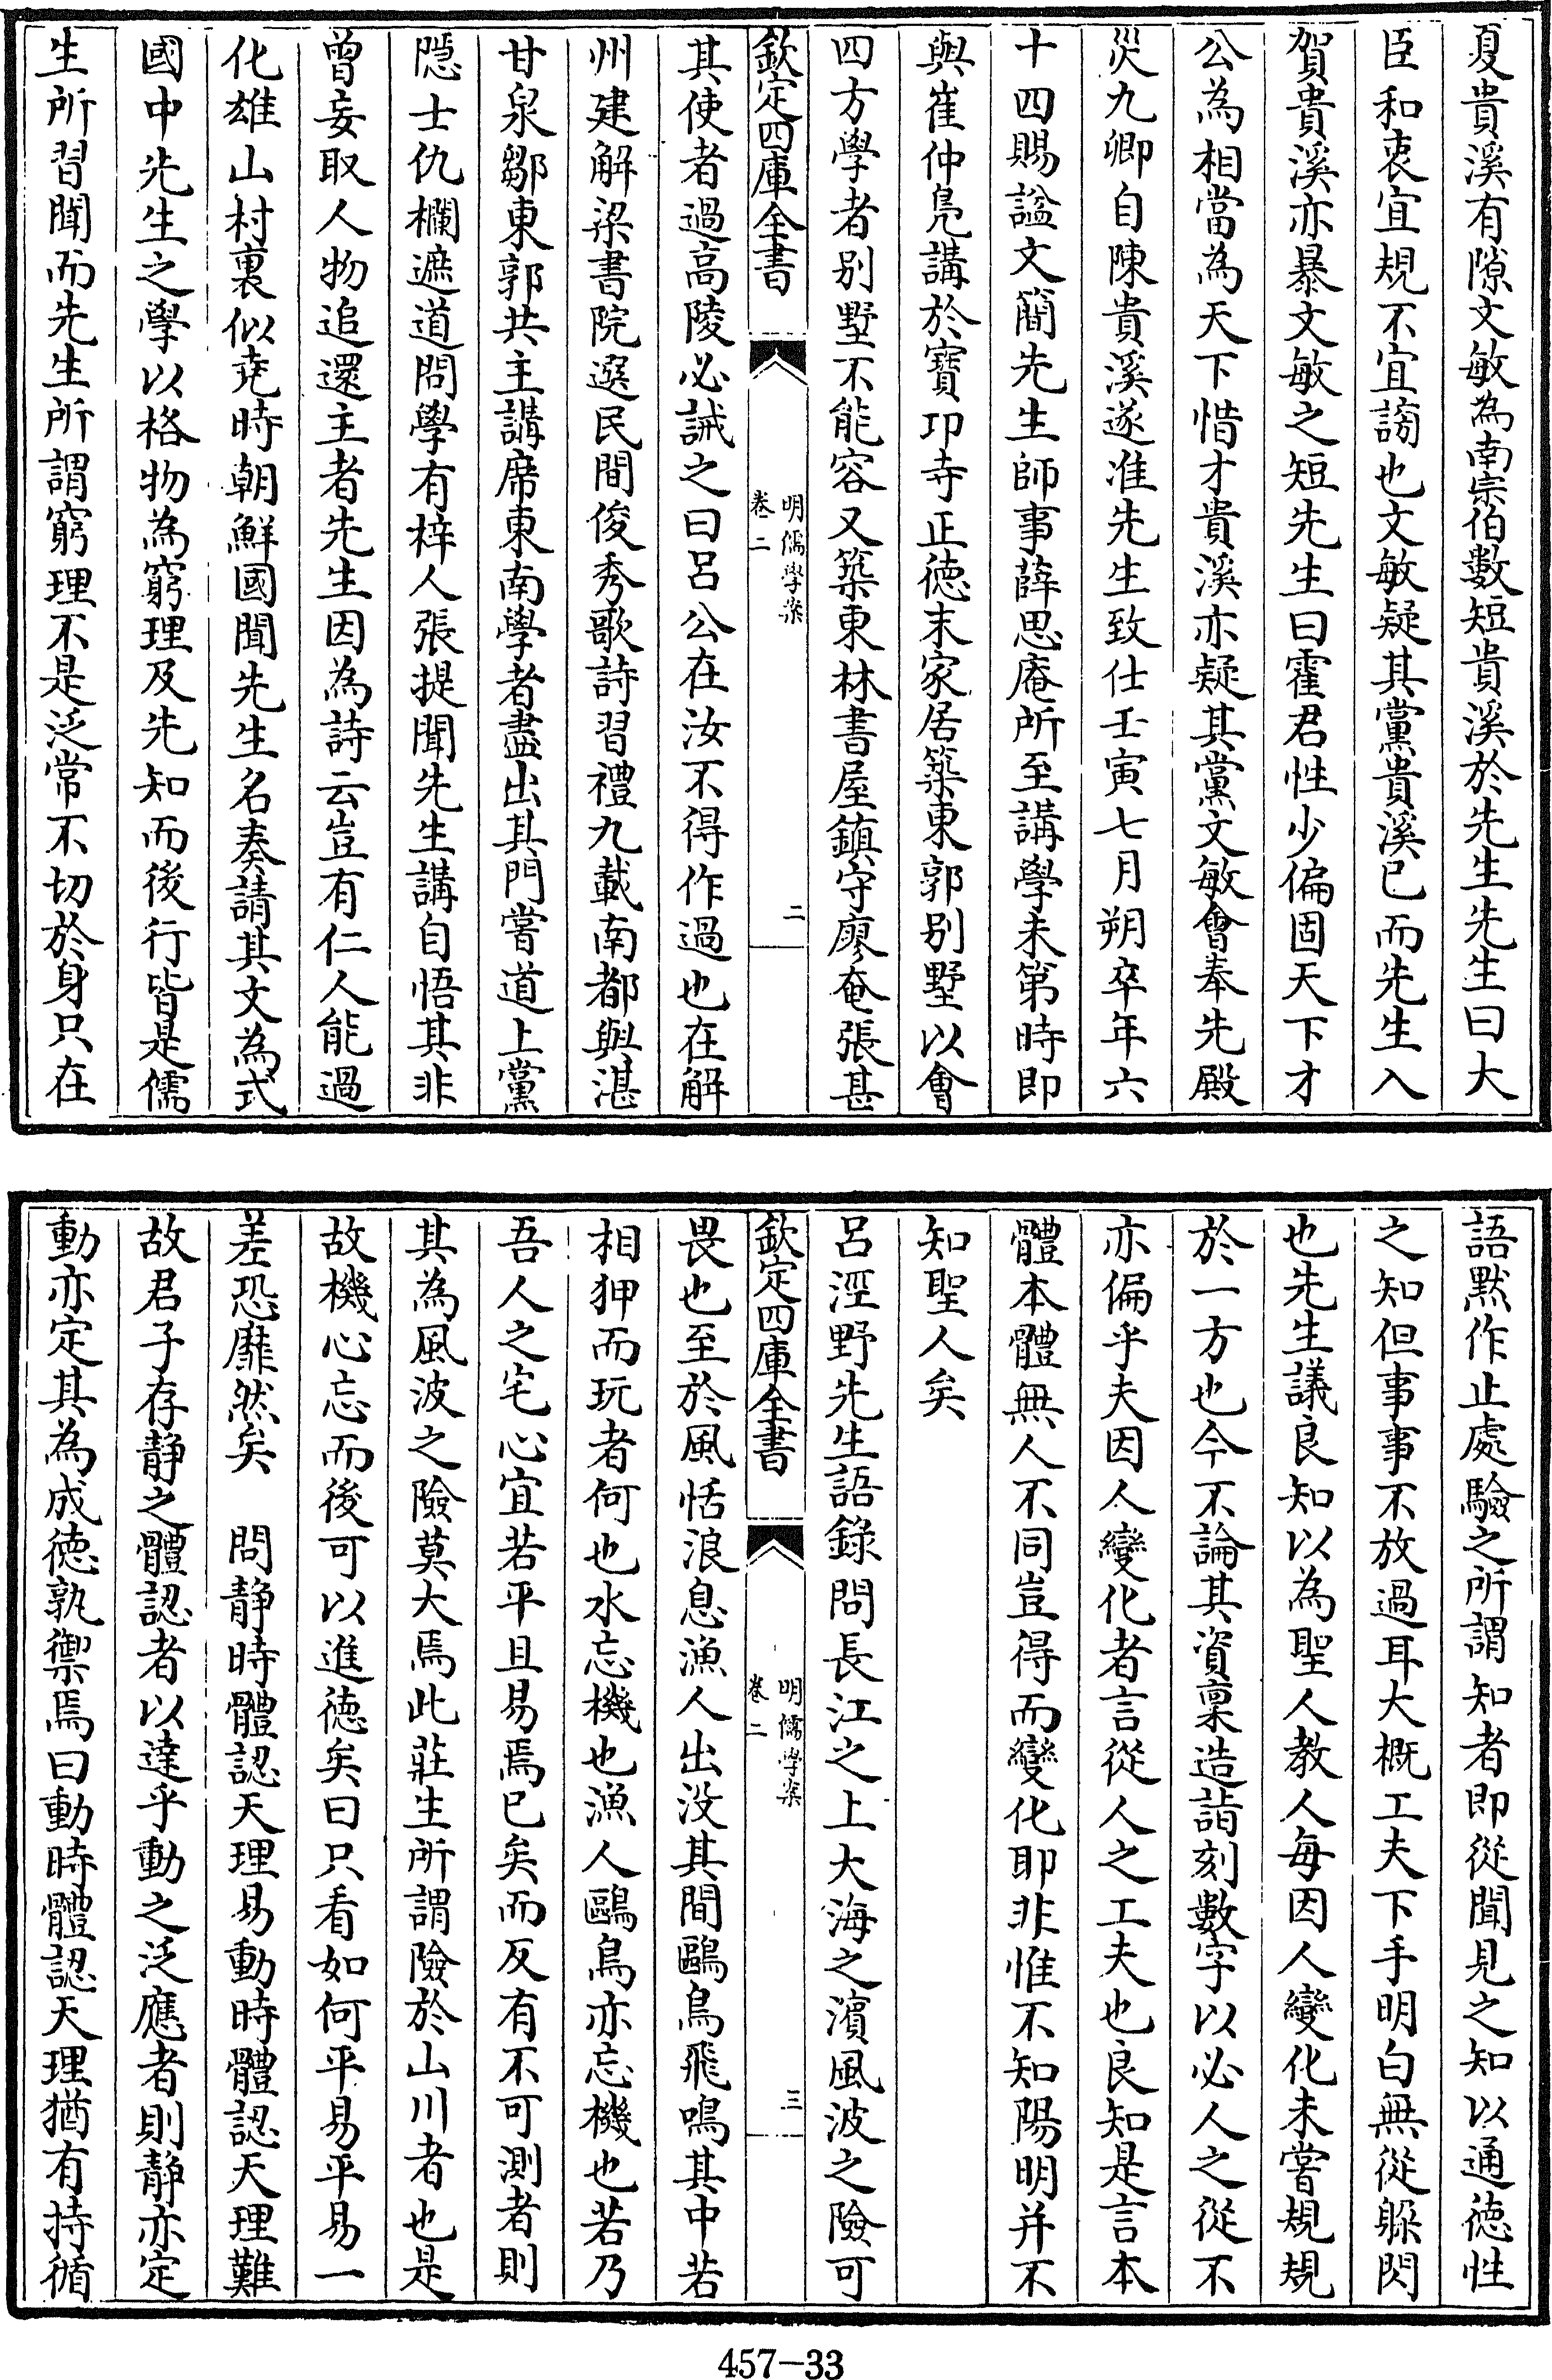 夏貴溪有隙文敏為南宗伯數短貴溪於先生先生曰大
臣和衷宜規不宜謗也文敏疑其黨貴溪已而先生入
賀貴溪亦暴文敏之短先生曰霍君性少偏固天下才
公為相當為天下惜才貴溪亦疑其黨文敏會奉先殿
災九卿自陳貴溪遂准先生致仕壬寅七月朔卒年六
十四賜諡文簡先生師事薛思庵所至講學未第時即
與崔仲鳧講於寳卭寺正德末家居築東郭别墅以㑹
四方學者别墅不能容又築東林書屋鎮守廖奄張甚
欽定四庫全書
明儒學案
卷二
二
其使者過高陵必誡之曰呂公在汝不得作過也在解
州建解梁書院選民間俊秀歌詩習禮九載南都與湛
甘泉鄒東郭共主講席東南學者盡出其門嘗道上黨
隱士仇欄遮道問學有梓人張提聞先生講自悟其非
曾妄取人物追還主者先生因為詩云豈有仁人能過
化雄山村裏似堯時朝鮮國聞先生名奏請其文為式
國中先生之學以格物為窮理及先知而後行皆是儒
生所習聞而先生所謂窮理不是泛常不切於身只在
語黙作止處驗之所謂知者即從聞見之知以通德性
之知但事事不放過耳大概工夫下手明白無從躲閃
也先生議良知以為聖人教人每因人變化未嘗規規
於一方也今不論其資稟造詣刻數字以必人之從不
亦偏乎夫因人變化者言從人之工夫也良知是言本
體本體無人不同豈得而變化耶非惟不知陽明并不
知聖人矣
呂涇野先生語錄問長江之上大海之濱風波之險可
欽定四庫全書
明儒學案
卷二
三
畏也至於風恬浪息漁人出没其間鷗鳥飛鳴其中若
相狎而玩者何也水忘機也漁人鷗鳥亦忘機也若乃
吾人之宅心宜若平且易焉已矣而反有不可測者則
其為風波之險莫大焉此莊生所謂險於山川者也是
故機心忘而後可以進德矣曰只看如何平易平易一
差恐靡然矣　問静時體認天理易動時體認天理難
故君子存静之體認者以達乎動之泛應者則静亦定
動亦定其為成德孰禦焉曰動時體認天理猶有持循
457-33